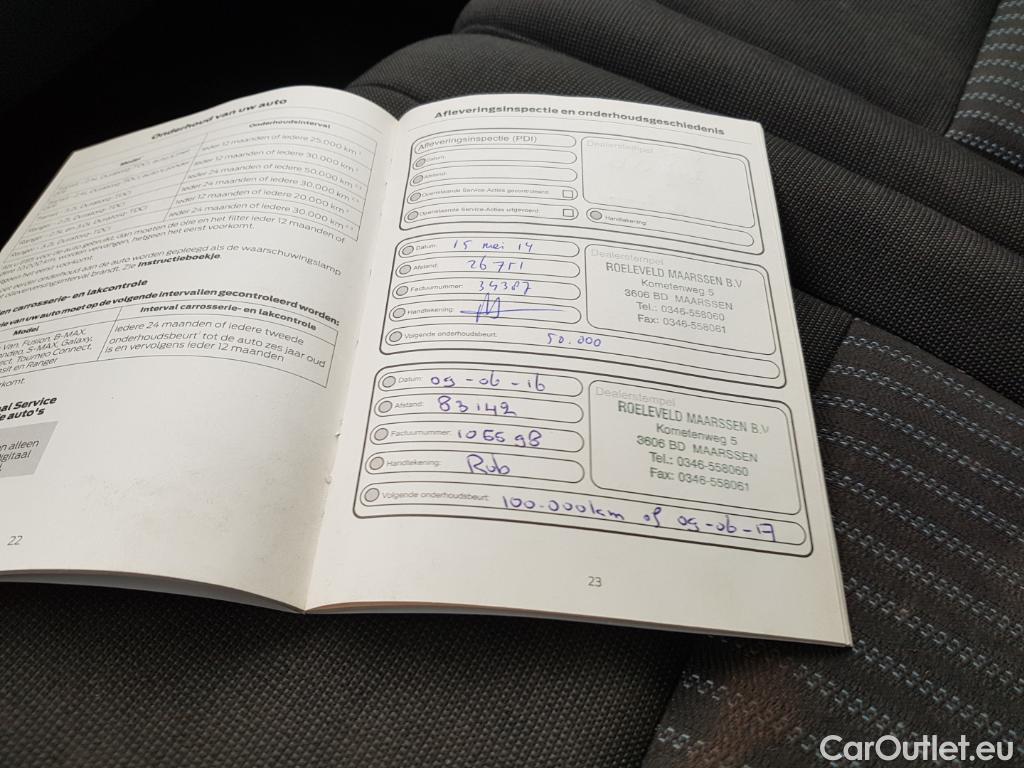 Onderhoud van uw auto
Model
Onderhoudsinterval
Ieder 12 maanden of iedere 25.000 km
Ieder 12 maanden of iedere 30.000 km
Ieder 24 maanden of iedere 50.000 km
Ieder 24 maanden of iedere 30.000 km
Ieder 12 maanden of iedere 20.000 km
Ieder 24 maanden of iedere 30.000 km
dan moeten de olie en het filter ieder 12 maanden of
worden vervangen, hetgeen het eerst voorkomt.
onderhoud aan de auto worden gepleegd als de waarschuwingslamp
brandt. Zie Instructieboekje.
carrosserie- en lakcontrole
van uw auto moet op de volgende intervallen gecontroleerd worden:
Model
Interval carrosserie- en lakcontrole
Van, Fusion, B-MAX,
S-MAX, Galaxy,
Tourneo Connect,
en Ranger
Iedere 24 maanden of iedere tweede
onderhoudsbeurt tot de auto zes jaar oud
is en vervolgens ieder 12 maanden
Service
auto's
alleen
22
Afleveringsinspectie en onderhoudsgeschiedenis
Afleveringsinspectie (PDI)
Datum:
Afstand:
Openstaande Service-Acties gecontroleerd:
Openstaande Service-Acties uitgevoerd:
Dealerstempel
Handtekening:
Datum: 15 mei 14
Afstand: 26751
Factuurnummer: 34387
Handtekening:
Volgende onderhoudsbeurt: 50.000
Dealerstempel
ROELEVELD MAARSSEN B.V
Kometenweg 5
3606 BD MAARSSEN
Tel.: 0346-558060
Fax: 0346-558061
Datum: 09-06-16
Afstand: 83142
Factuurnummer: 105598
Handtekening: Rob
Volgende onderhoudsbeurt: 100.000km of 09-06-17
Dealerstempel
ROELEVELD MAARSSEN B.V
Kometenweg 5
3606 BD MAARSSEN
Tel.: 0346-558060
Fax: 0346-558061
23
CarOutlet.eu